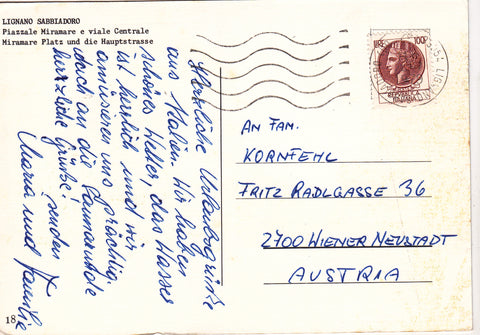 LIGNANO SABBIADORO
Piazzale Miramare e viale Centrale
Miramare Platz und die Hauptstrasse
Herzliche Urlaubsgrüße
aus Italien. Wir haben
schönes Wetter, das Wasser
ist herrlich und wir
amüsieren uns prächtig.
doch an die
herzliche Grüße!
senden
Maria und Familie
LIRE 100
AN FAM.
KORNFEHL
FRITZ RADLGASSE 36
2700 WIENER NEUSTADT
AUSTRIA
18